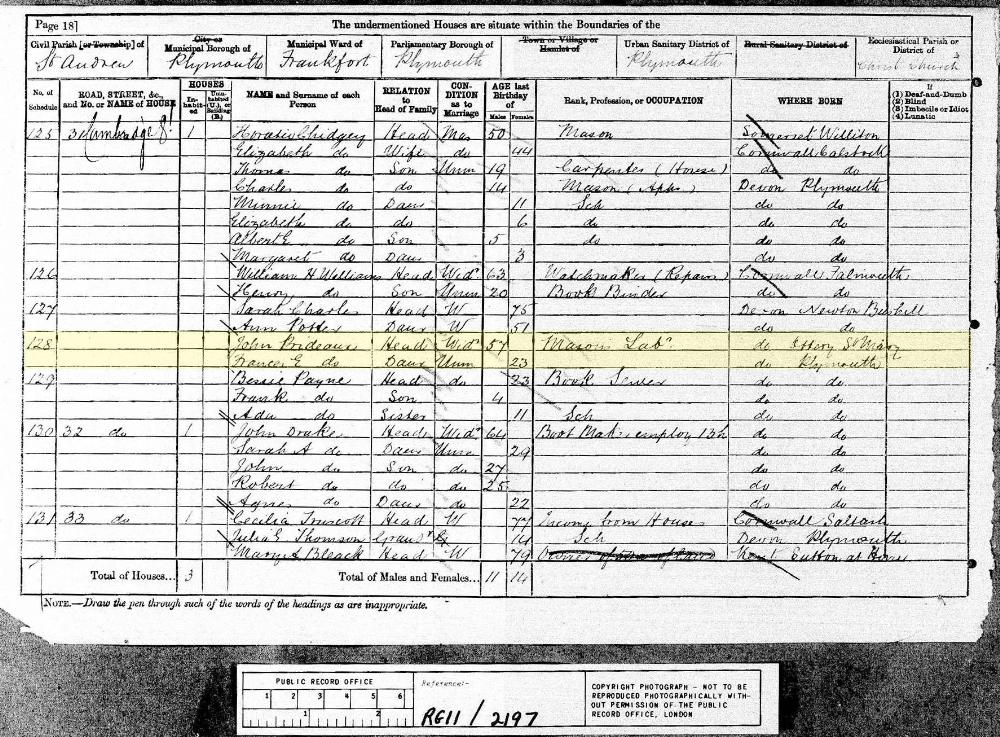 Page 18]
The undermentioned Houses are situate within the Boundaries of the
Civil Parish [or Township] of
City or Municipal Borough of
Municipal Ward of
Parliamentary Borough of
Town or Village or Hamlet of
Urban Sanitary District of
Rural Sanitary District of
Ecclesiastical Parish or District of
St Andrew Plymouth Frankfort Plymouth Plymouth Christ Church
No. of Schedule
ROAD, STREET, &c., and No. or NAME of HOUSE
HOUSES
Inhabited
Uninhabited (U.), or Building (B.)
NAME and Surname of each Person
RELATION to Head of Family
CONDITION as to Marriage
AGE last Birthday of
Males Females
Rank, Profession, or OCCUPATION
WHERE BORN
If
(1) Deaf-and-Dumb
(2) Blind
(3) Imbecile or Idiot
(4) Lunatic
125 31 Cambridge St 1 Horatio Chidgey Head Mar 50 Mason Somerset Williton
Elizabeth do Wife do 44 Cornwall Calstock
Thomas do Son Unm 19 Carpenter (House) do do
Charles do do 14 Mason (Apps) Devon Plymouth
Minnie do Daur 11 Sch do do
Elizabeth do do 6 do do do
Albert E do Son 5 do do do
Margaret do Daur 3 do do
126 William H Williams Head Widr 63 Watchmaker (Repairs) Cornwall Falmouth
Henry do Son Unm 20 Book Binder do do
127 Sarah Charles Head W 75 Devon Newton Bushill
Ann Potter Daur W 51 do do
128 John Prideaux Head Widr 57 Masons Labr do Ottery St Mary
Frances E do Daur Unm 23 do Plymouth
129 Bessie Payne Head do 23 Book Sewer do do
Frank do Son 4 do do
Ada do Sister 11 Sch do do
130 32 do 1 John Drake Head Widr 64 Boot Makr employ 13 h do do
Sarah A do Daur Unm 29 do do
John do Son do 27 do do
Robert do do do 25 do do
Agnes do Daur do 22 do do
131 33 do 1 Cecilia Truscott Head W 77 Income from Houses Cornwall Saltash
Julia E Thomson 14 Sch Devon Plymouth
Mary A Bleack Head W 79 Kent Sutton at Hone
Total of Houses... 3 Total of Males and Females... 11 14
NOTE.—Draw the pen through such of the words of the headings as are inappropriate.
PUBLIC RECORD OFFICE
1 2 3 4 5 6
1 2
Reference:-
RG11 / 2197
COPYRIGHT PHOTOGRAPH - NOT TO BE
REPRODUCED PHOTOGRAPHICALLY WITH-
OUT PERMISSION OF THE PUBLIC
RECORD OFFICE, LONDON